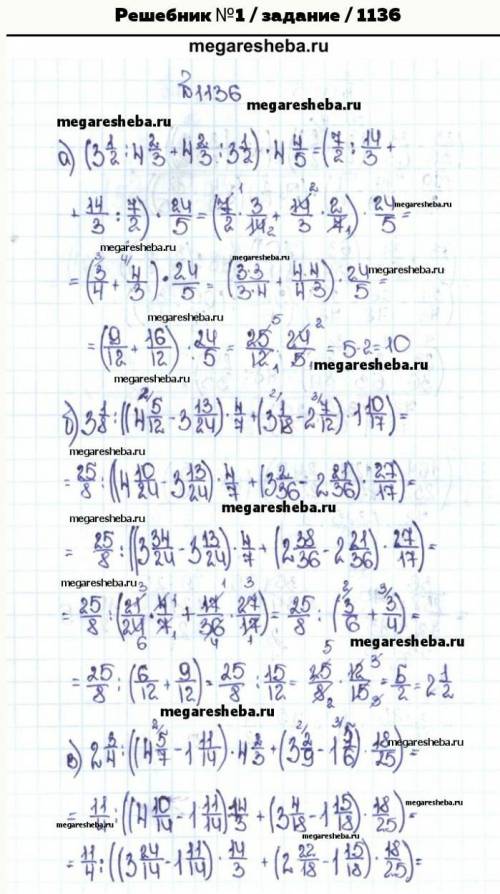 Решебник №1 / задание / 1136
megaresheba.ru
№1136
megaresheba.ru
megaresheba.ru
а) (3 1/2 : 4 2/3 + 4 2/3 : 3 1/2) · 4 4/5 = (7/2 : 14/3 +
+ 14/3 : 7/2) · 24/5 = (7/2 · 3/14 + 14/3 · 2/7) · 24/5 =
megaresheba.ru
megaresheba.ru
megaresheba.ru
= (3/4 + 4/3) · 24/5 = (3·3/3·4 + 4·4/4·3) · 24/5 =
megaresheba.ru
megaresheba.ru
= (9/12 + 16/12) · 24/5 = 25/12 · 24/5 = 5·2=10
megaresheba.ru
megaresheba.ru
б) 3 1/8 : ((4 5/12 - 3 13/24) · 4/7 + (3 1/18 - 2 7/12) · 1 10/17) =
megaresheba.ru
= 25/8 : ((4 10/24 - 3 13/24) · 4/7 + (3 2/36 - 2 21/36) · 27/17) =
megaresheba.ru
megaresheba.ru
= 25/8 : ((3 34/24 - 3 13/24) · 4/7 + (2 38/36 - 2 21/36) · 27/17) =
megaresheba.ru
= 25/8 : (21/24 · 4/7 + 17/36 · 27/17) = 25/8 : (3/6 + 3/4) =
megaresheba.ru
= 25/8 : (6/12 + 9/12) = 25/8 : 15/12 = 25/8 · 12/15 = 5/2 = 2 1/2
megaresheba.ru
в) 2 3/4 : ((4 5/7 - 1 11/14) · 4 2/3 + (3 2/9 - 1 5/6) · 18/25) =
megaresheba.ru
= 11/4 : ((4 10/14 - 1 11/14) 14/3 + (3 4/18 - 1 15/18) · 18/25) =
megaresheba.ru
megaresheba.ru
megaresheba.ru
= 11/4 : ((3 24/14 - 1 11/14) · 14/3 + (2 22/18 - 1 15/18) · 18/25) =